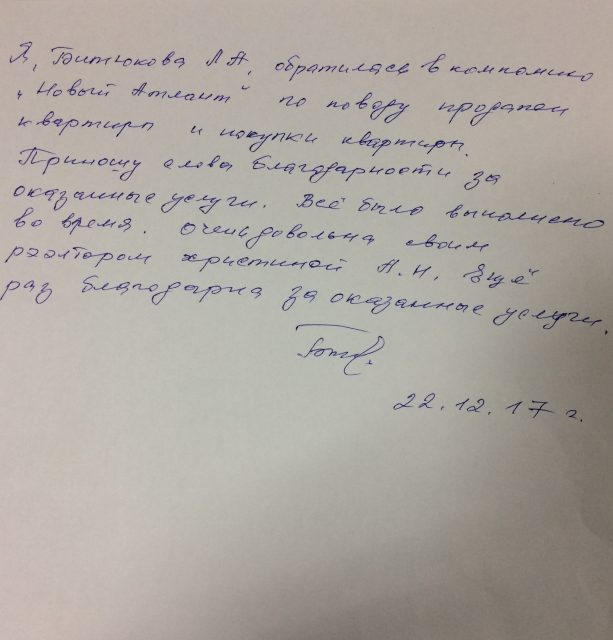 Я, Битюкова Л А, обратилась в компанию
"Новый Атлант" по поводу продажи
квартиры и покупки квартиры.
Приношу слова благодарности за
оказанные услуги. Всё было выполнено
во время. Очень довольна своим
риэлтором Христиной А. Н. Ещё
раз благодарна за оказанные услуги.
22.12.17 г.